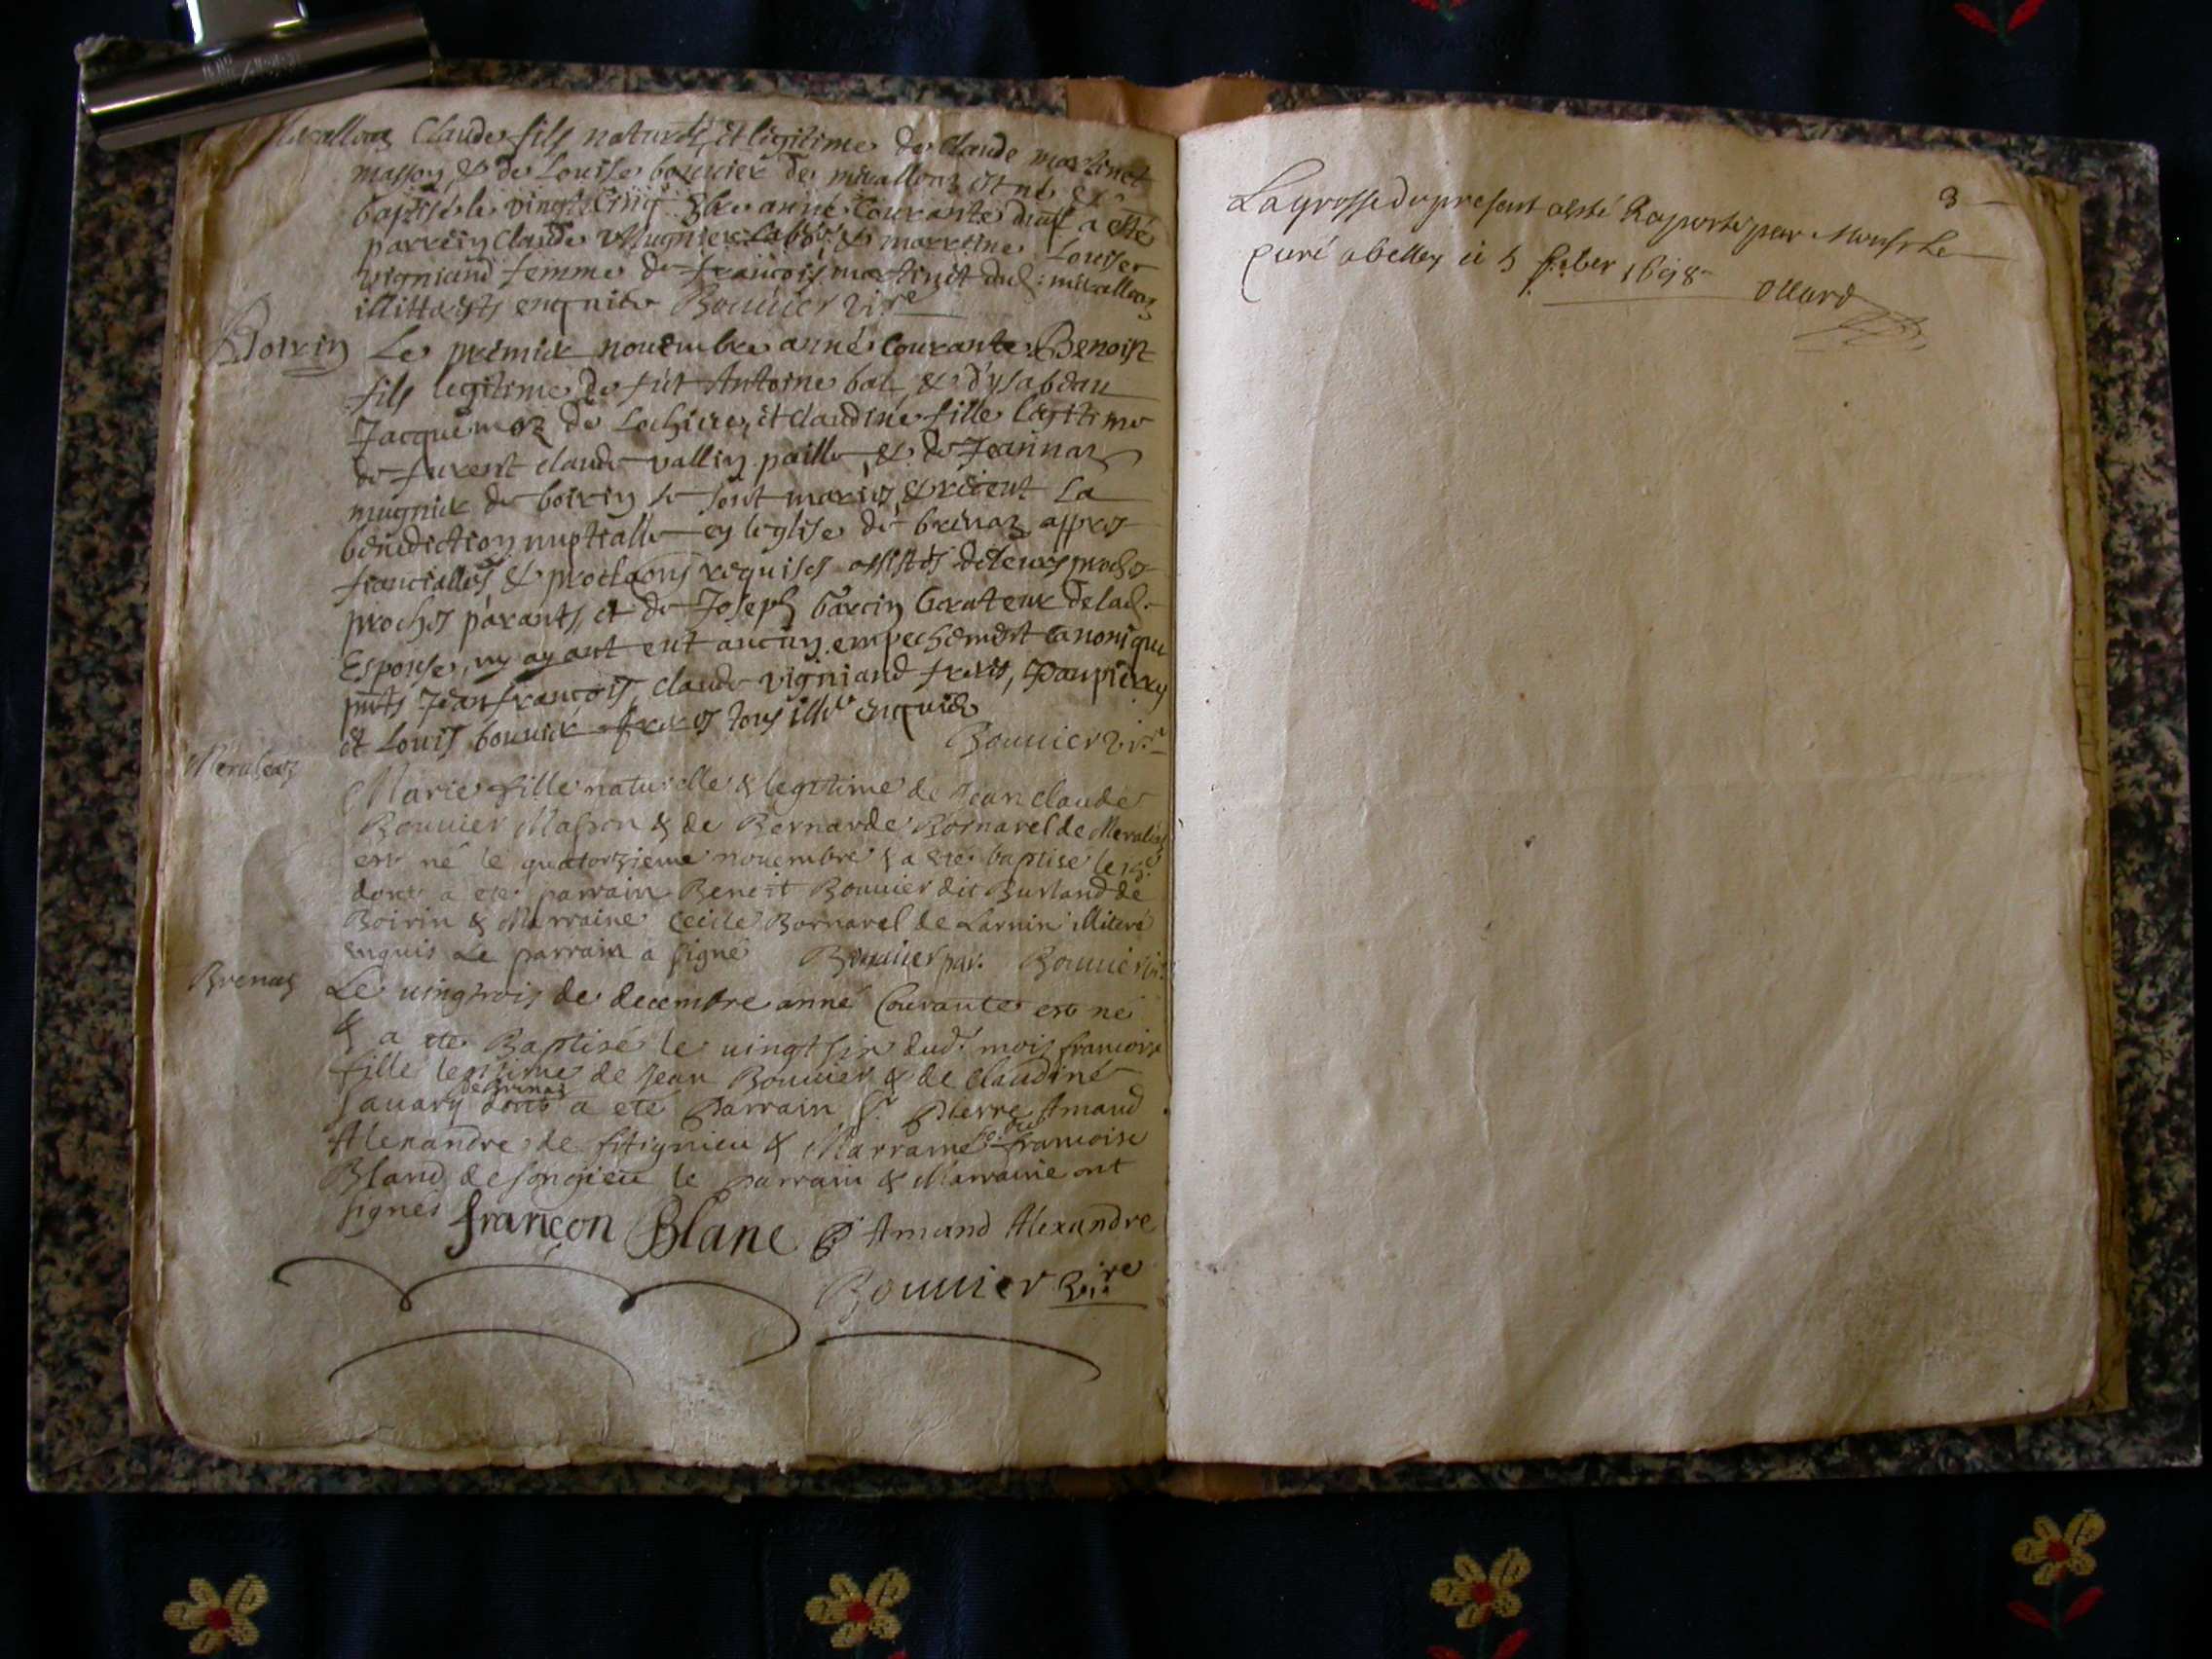 Claude fils naturel et legitime de Claude martinet
masson & de Louise bouuier de miralloaz est né &
baptisé le vingt cinq 8bre anné Courante duqt a esté
parrein Claude Mugnier & marreine Louise
vigniand femme de francois martinet dud: mirallioaz
illitterés enquits Bouuier vire
Boirin
Le premier nouembre anné Courante Benoist
fils legitime de fût Antoine bal, & d'ysabeau
Jacquemoz de Lochieu, et Claudine fille legitime
de furent claude vallin paille, & de Jeannaz
mugnier de boirin se sont mariés, & receut La
bénediction nuptialle en leglise de brénaz appres
fianciallies, & proclaons requises assistés de leurs proches
proches parants, et de Joseph barcin Curateur de lad.
Espouse, ny ayant eut aucun empechement canonique
pnts Jean francois, claude vigniand freres,
et Louis bouuier freres tous illits enquits
Bouuier vire
Meraleaz
Marie fille naturelle & legitime de Jean claude
Bouuier Masson & de Bernarde Bornarel de Meraleaz
est né le quatorzieme nouembre & a eté baptise le 15e
dont a eté parrain Benoit Bouuier dit Burland de
Boirin & Marraine Cecile Bornarel de Larnin illiteré
enquis Le parrain a signé Bouuier par. Bouuier vire
Brenaz
Le uingtrois de decembre anné Courante est né
& a eté Baptisé le uingt six dud. mois francoise
fille legitime de Jean Bouuier & de claudine
Sauary de Brenaz dont a eté Parrain Sr. Pierre Amand
Alexandre de fitignieu & Marraine francoise
Bland de songieu le parrain & Marraine ont
signés françon Blanc P Amand Alexandre
Bouuier vire
3
La grosse du present a esté Raporté par Monsr Le
Curé a belley ce 5 feber 1698 Ollard